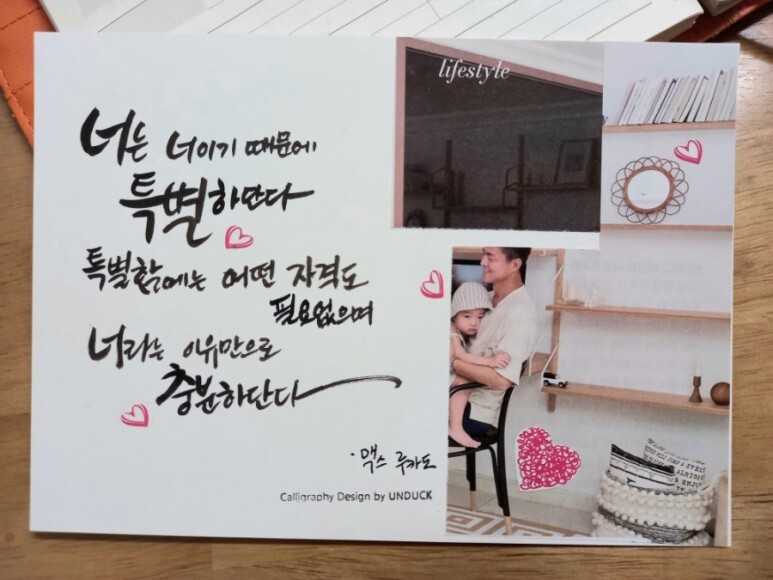 너는 너이기 때문에
특별하단다
특별함에는 어떤 자격도
필요없으며
너라는 이유만으로
충분하단다
·맥스 루카도
Calligraphy Design by UNDUCK
lifestyle